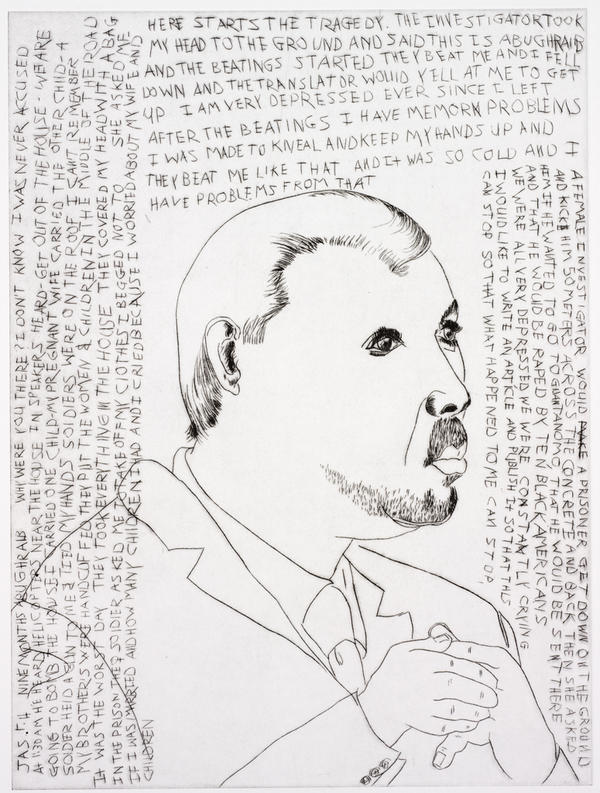 HERE STARTS THE TRAGEDY. THE INVESTIGATOR TOOK
MY HEAD TO THE GROUND AND SAID THIS IS ABUGHRAIB
AND THE BEATINGS STARTED THEY BEAT ME AND I FELL
DOWN AND THE TRANSLATOR WOULD YELL AT ME TO GET
UP I AM VERY DEPRESSED EVER SINCE I LEFT
AFTER THE BEATINGS I HAVE MEMORN PROBLEMS
I WAS MADE TO KNEAL AND KEEP MY HANDS UP AND I
THEY BEAT ME LIKE THAT AND IT WAS SO COLD AND
HAVE PROBLEMS FROM THAT
A FEMALE INVESTIGATOR WOULD MAKE A PRISONER GET DOWN ON THE GROUND
AND KICK HIM 50 METERS ACROSS THE CONCRETE AND BACK THEN SHE ASKED
HEM IF HE WANTED TO GO TO GUANTANOMO THAT HE WOULD BE SENT THERE
AND THAT HE WOULD BE RAPED BY TEN BLACK AMERICANS
WE WERE ALL VERY DEPRESSED WE WERE CONSTANTLY CRYING
I WOULD LIKE TO WRITE AN ARTICLE AND PUBLISH IT SO THAT THIS
CAN STOP SO THAT WHAT HAPPENED TO ME CAN STOP
JAS.T.H NINE MONTHS ABUGHRAIB WHY WERE YOU THERE? I DON'T KNOW I WAS NEVER ACCUSED
At 1:30 AM HE HEARD HELICOPTERS NEAR THE HOUSE IN SPEAKERS HEARD-GET OUT OF THE HOUSE - WE ARE
GOING TO BOMB THE HOUSE I CARRIED ONE CHILD-MY PREGNANT WIFE CARRIED THE OTHER CHILD-A
SOLDER HELD A GUN TO ME & TIED MY HANDS SOLDIERS WERE ON THE ROOF I CAN'T REMEMBER
MY BROTHERS WERE HANDCUFFED THEY PUT THE WOMEN & CHILDREN IN THE MIDDLE OF THE ROAD
It WAS THE WORST DAY THEY TOOK EVERITHING IN THE HOUSE THEY COVERED MY HEAD WITH A BAG
IN THE PRISON THE SOLDIER ASKED ME TO TAKE OFF MY CLOTHES I BEGGED NOT TO SHE ASKED ME
IF I WAS MARRIED AND HOW MANY CHILDREN I HAD AND I CRIED BECAUSE I WORRIED ABOUT MY WIFE AND
CHILDREN